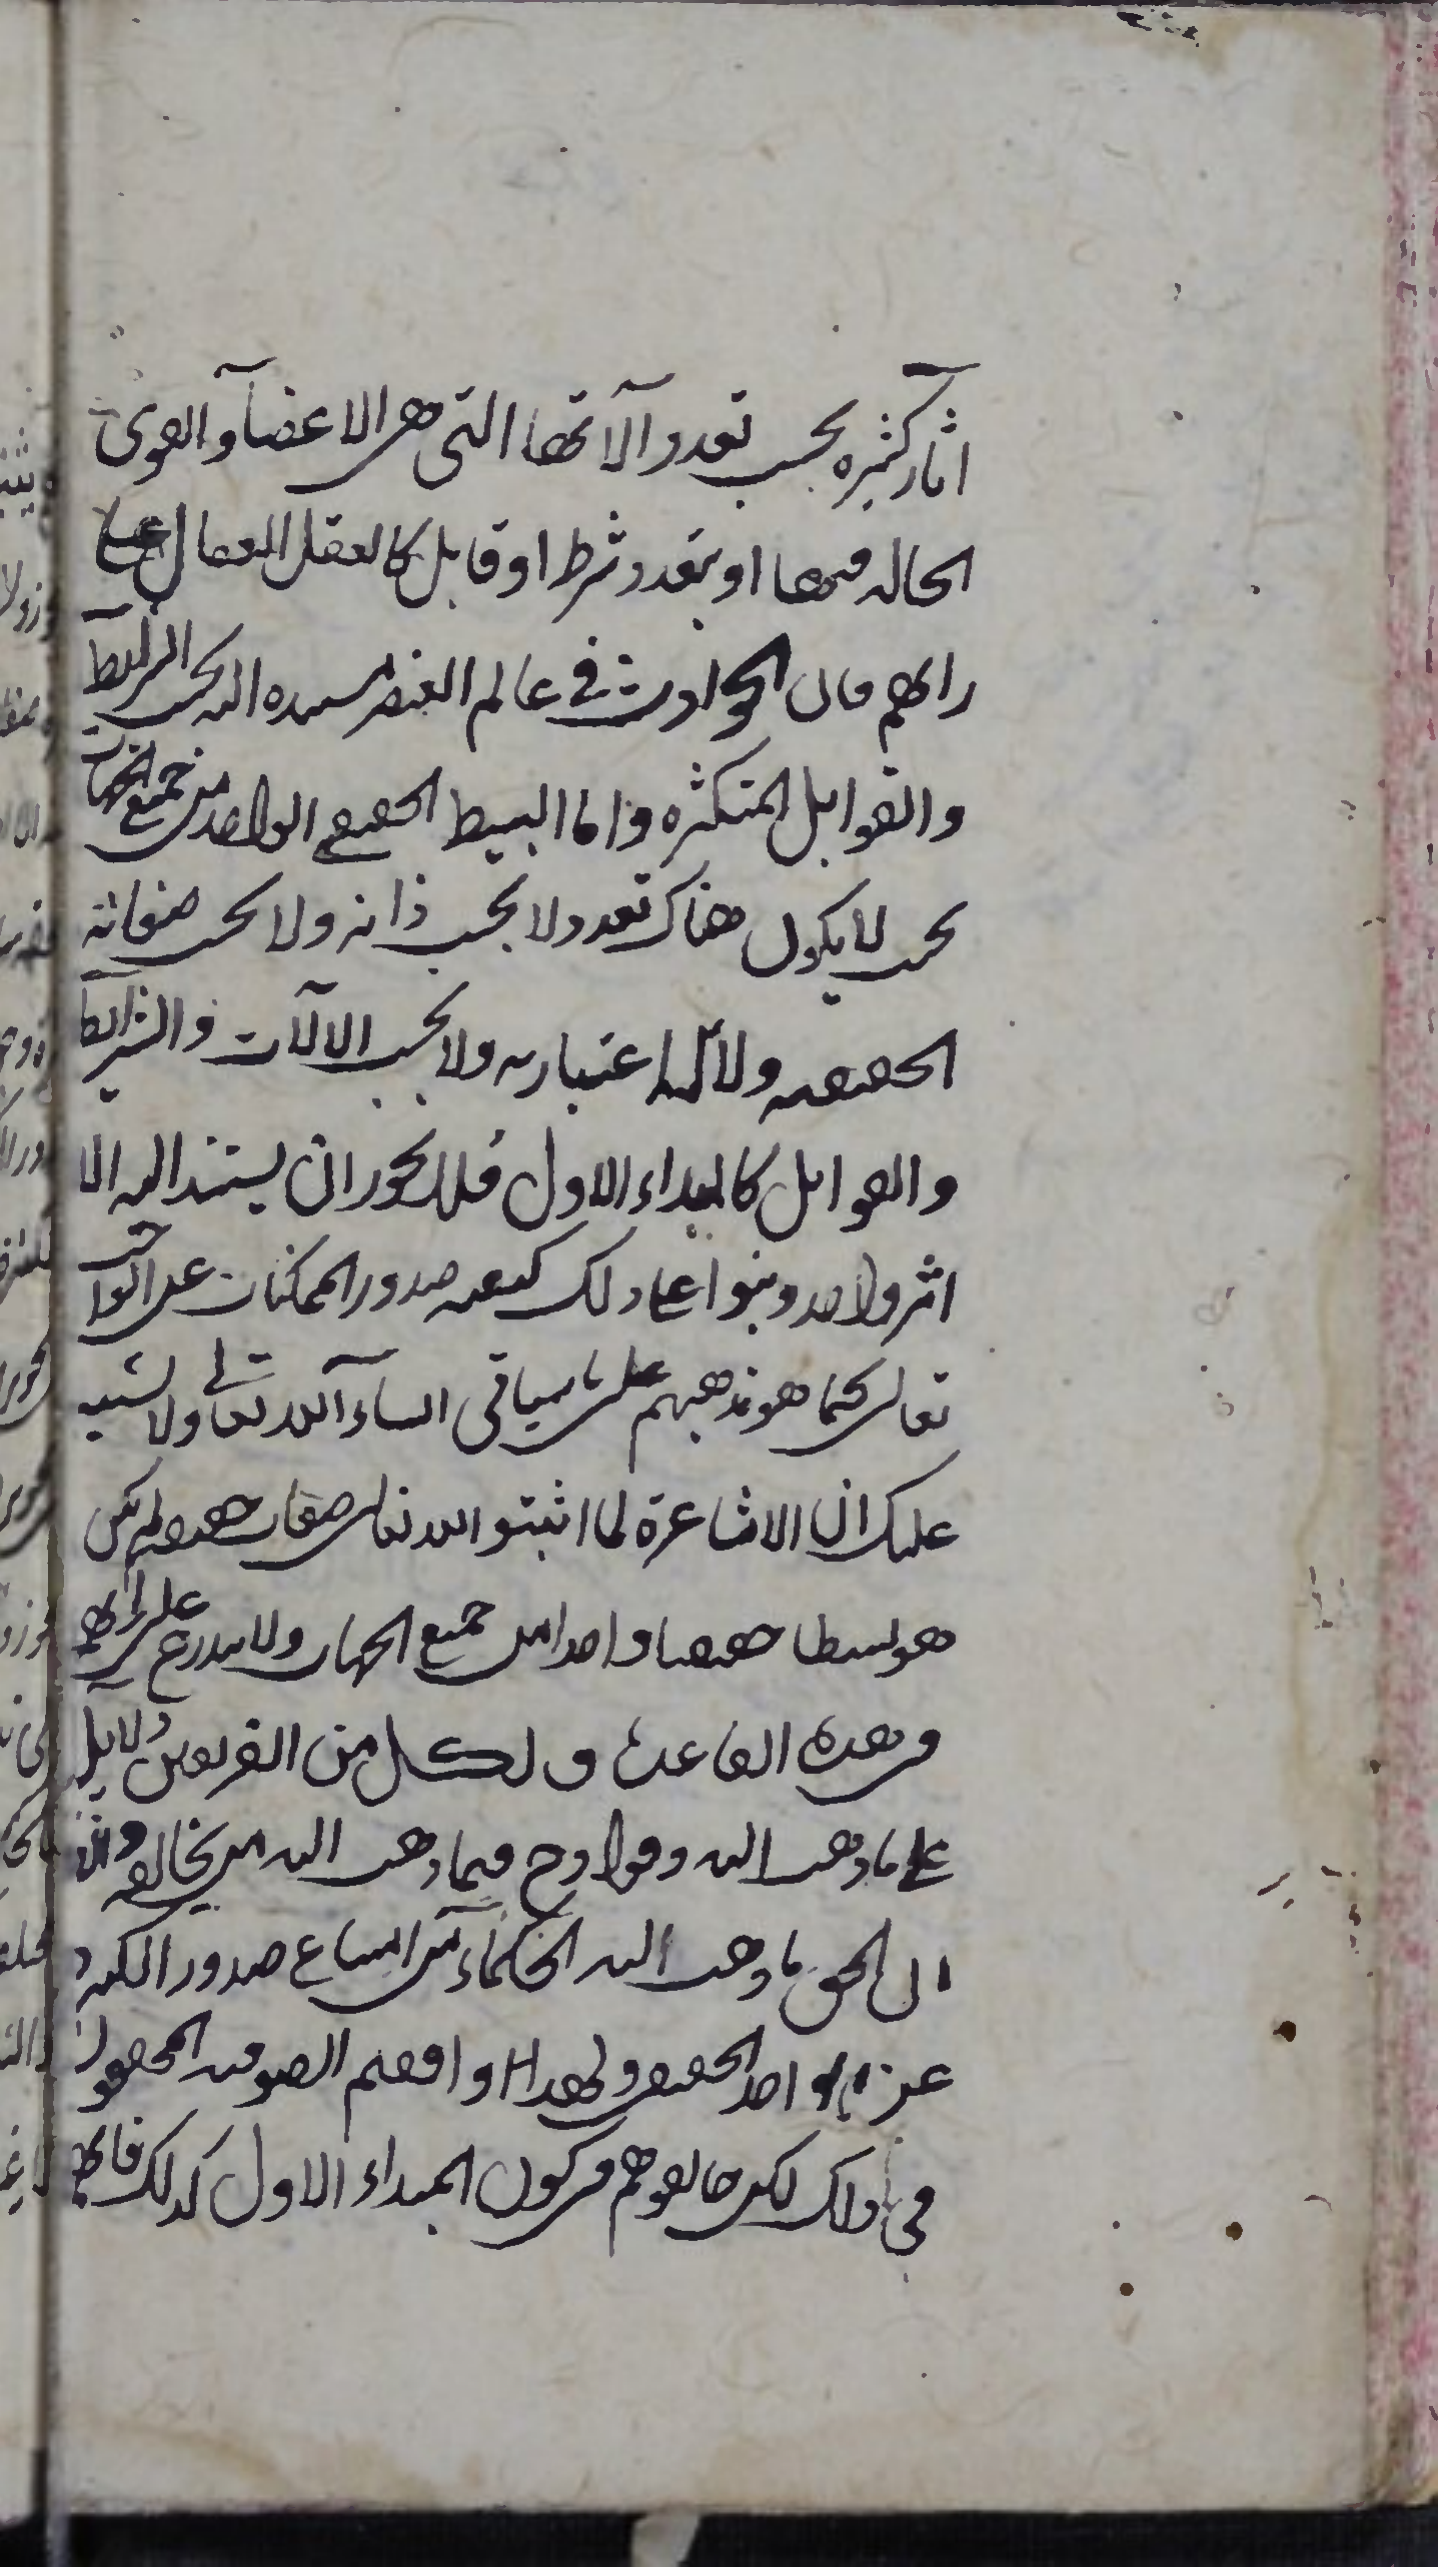 اثار كثيره بحسب تعدد الآتها التى هى الاعضآ والقوى
الحاله فيها او بتعدد شرط او قابل كالعقل الفعال على
رايهم فان الحوادث فى عالم العنصر مستنده اليه بحسب الشرايط
والقوابل المتكثره واما البسيط الحقيقى الواحد من جميع الجهات
بحيث لا يكون هناك تعدد لا بحسب ذاته ولا بحسب صفاته
الحقيقيه ولا الاعتباريه ولا بحسب الالآت والشرايط
والقوابل كالمبداء الاول فلا يجوز ان يستند اليه الا
اثر واحد وبنوا على ذلك كيفيه صدور الممكنات عن الواجب
تعالى كما هو مذهبهم على ما سياتى انشاء آلله تعالى ولا يشتبه
عليك ان الاشاعرة لما اثبتوا لله تعالى صفات حقيقيه لم يكن
هو بسيطا حقيقيا واحدا من جميع الجهات ولا يندرج على رايهم
فى هذه القاعدة ولكل من الفريقين دلايل
على ما ذهب اليه وقوادح فيما ذهب اليه من يخالفه وانا
ان الحق ما ذهب اليه الحكماء من امتناع صدور الكثرة
عن الواحد الحقيقى ولهذا وافقهم الصوفيه المحققون
فى ذلك لكن خالفوهم فى كون المبداء الاول كذلك فانهم